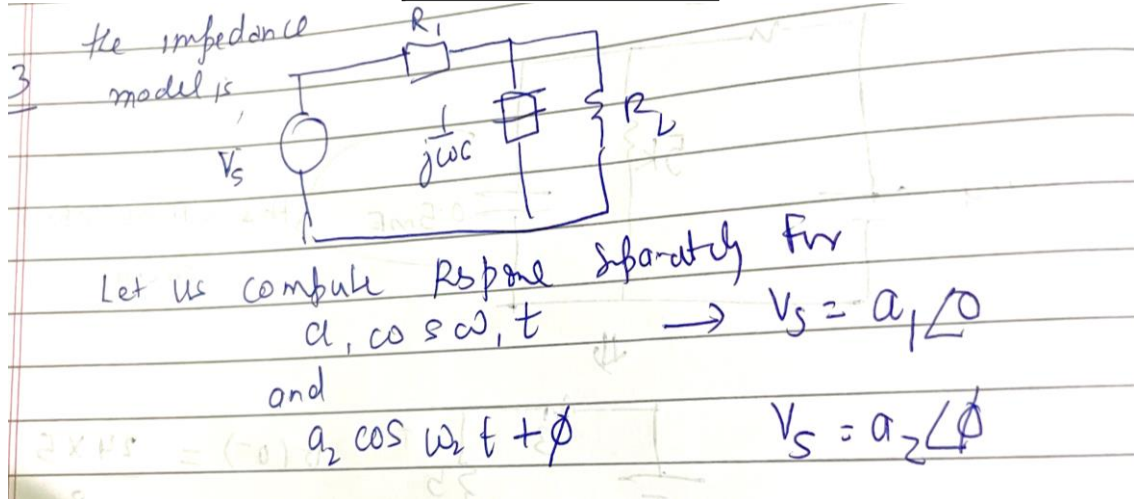 the impedance
R1
3
model is
Vs
1/jωc
RL
Let us compute Response separately for
a1 cos ω1 t → Vs = a1∠0
and
a2 cos ω2 t + ϕ Vs = a2∠ϕ